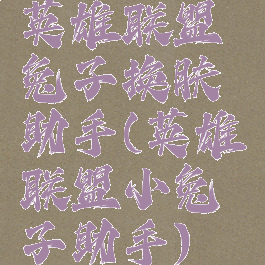 英雄联盟
兔子换肤
助手(英雄
联盟小兔
子助手)